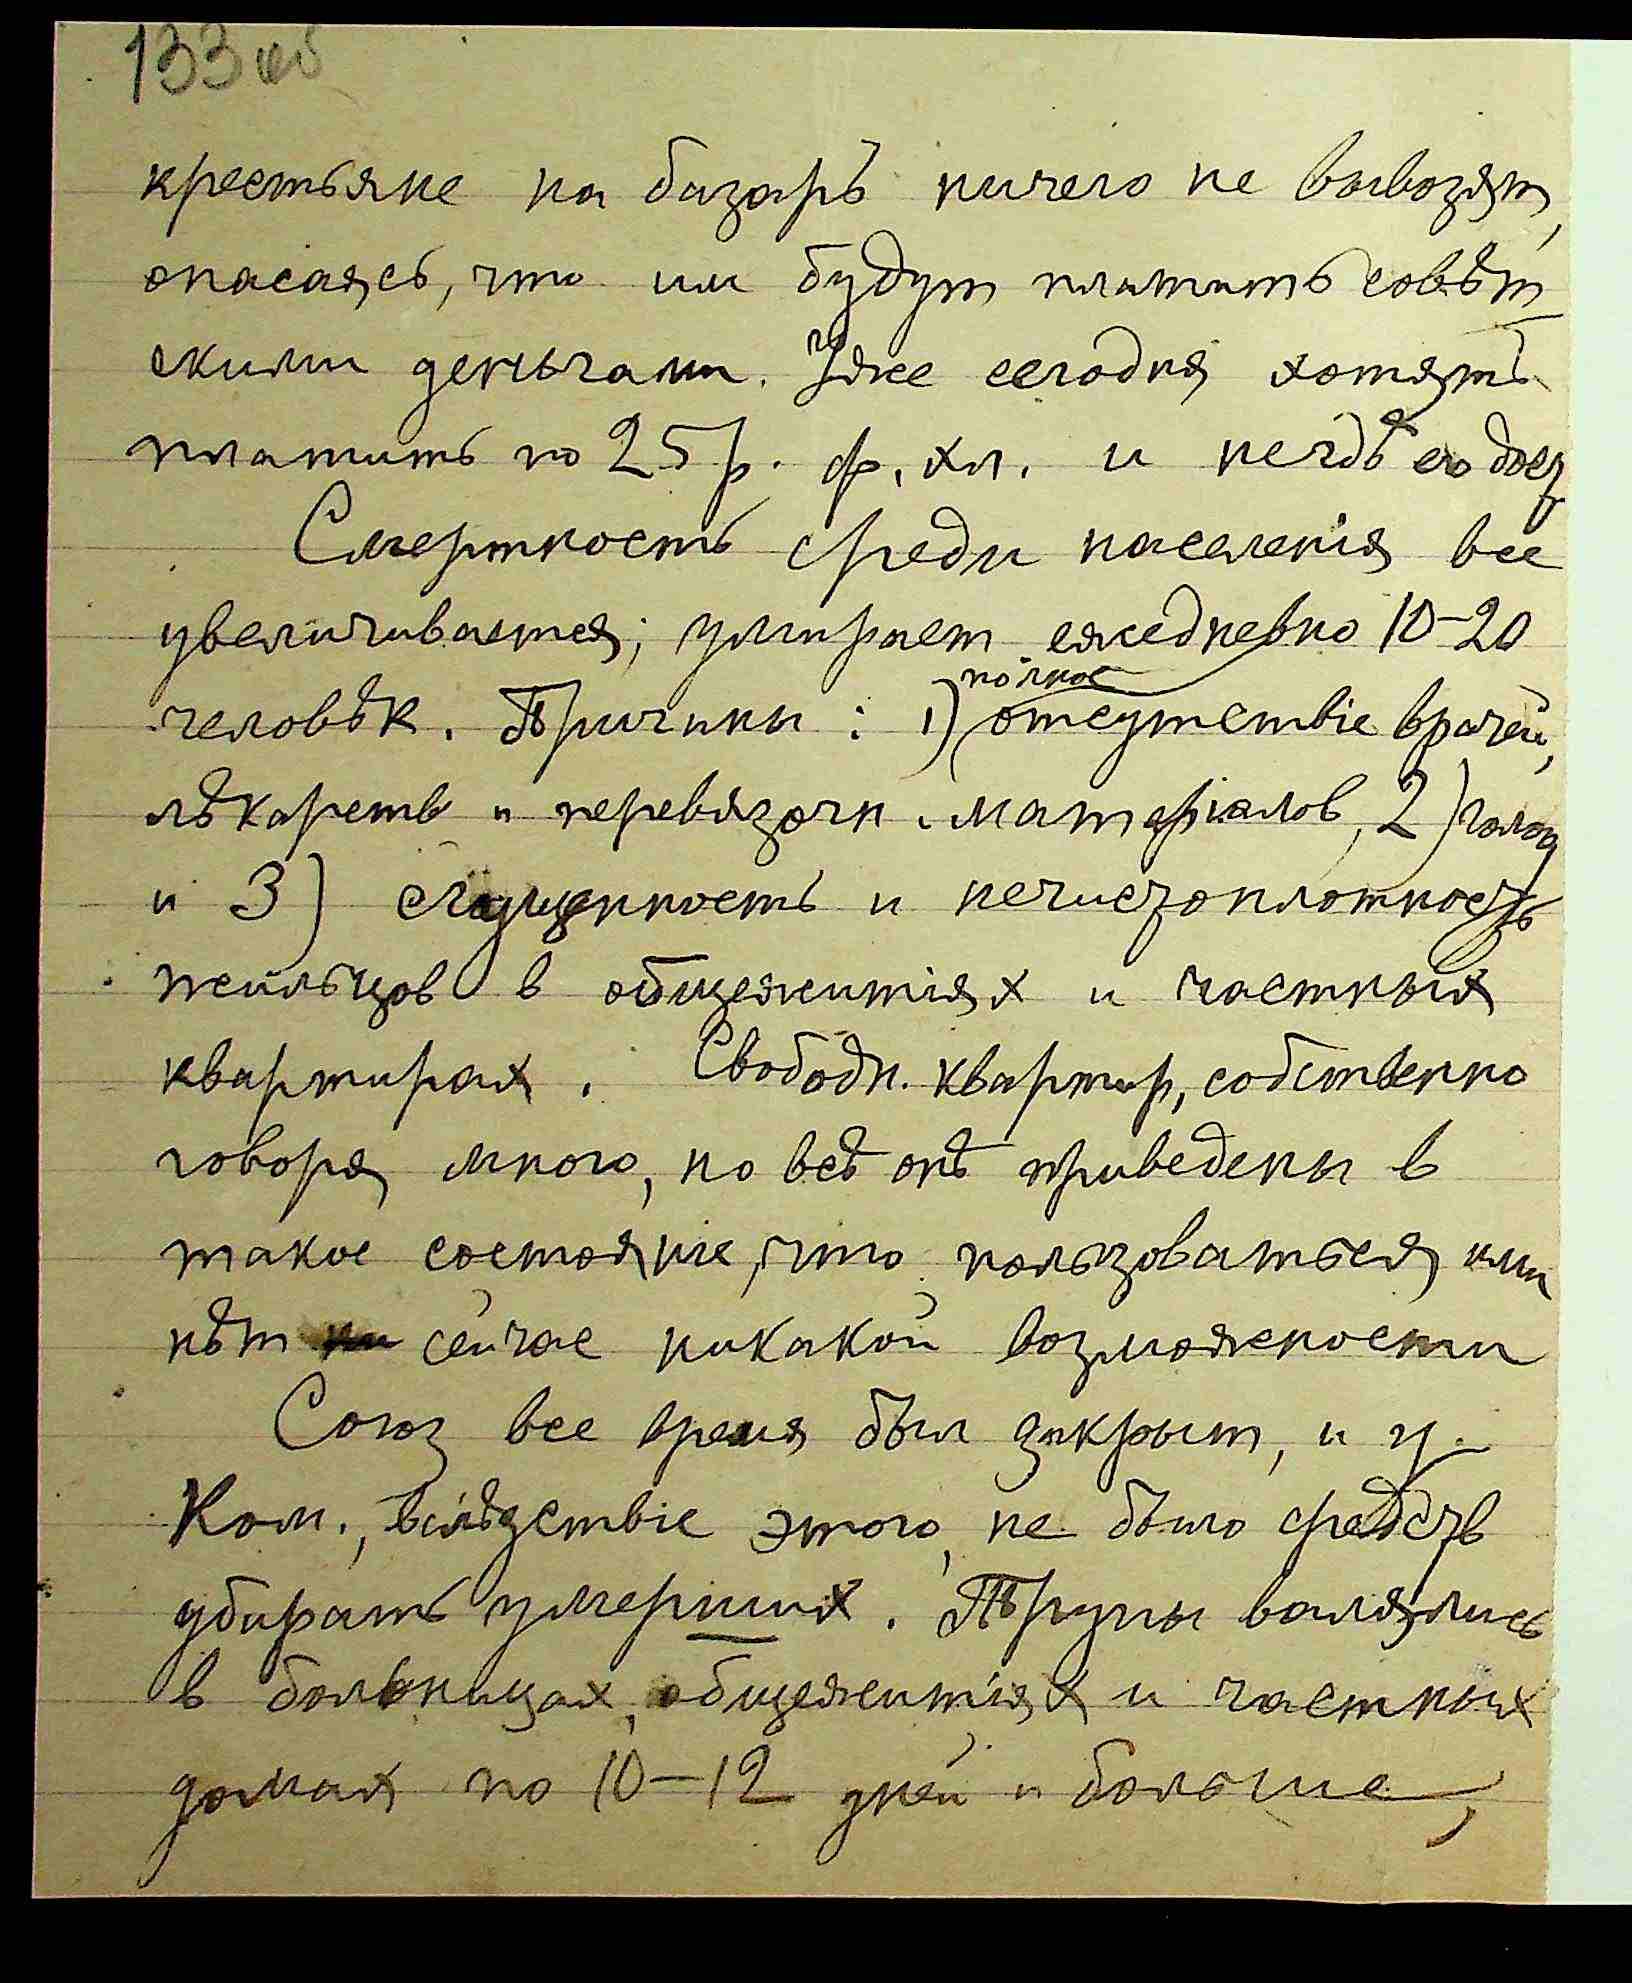 133 об
крестьяне на базаръ ничего не вывозят,
опасаясь, что им будут платить совѣт
скими деньгами. Уже сегодня хотятъ
платить по 25 р. ф. хл. и негдѣ его дост
Смертность среди населенія все
увеличивается; умирает ежедневно 10–20
человѣк. Причины: 1) полное отсутствіе врачей,
лѣкарств и перевязочн. матеріалов, 2) голод
и 3) сгущенность и нечистоплотность
жильцов в общежитіях и частных
квартирах. Свободн. квартир, собственно
говоря, много, но всѣ онѣ приведены в
такое состояніе, что пользоваться ими
нѣт сейчас никакой возможности
Союз все время был закрыт, и у
Ком., вслѣдствіе этого, не было средств
убирать умерших. Трупы валялись
в больницах, общежитіях и частных
домах по 10–12 дней и больше,